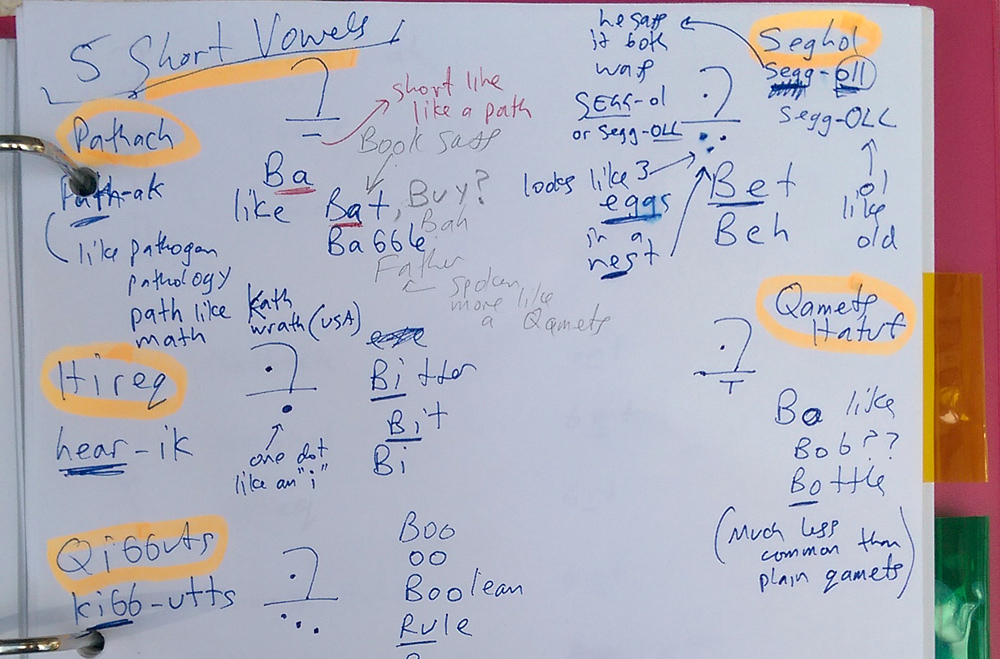 5 Short Vowels
Pathach
Path-ak
like pathogen
pathology
path like Kath
math wrath (USA)
short like
like a path
Book says
Ba
like Bat, Buy?
Babble Bah
Father
spoken
more like
a Qamets
he says
it both
way
Seghol
Segg-oll
Segg-OLL
SEGG-ol
or Segg-OLL
looks like 3
eggs
in a
nest
Bet
Beh
ol
like
old
Hireq
hear-ik
one dot
like an "i"
Bitter
Bit
Bi
Qamets
Hatuf
Bo like
Bob??
Bottle
(Much less
common than
plain qamets)
Qibbuts
kibb-utts
Boo
oo
Boolean
Rule